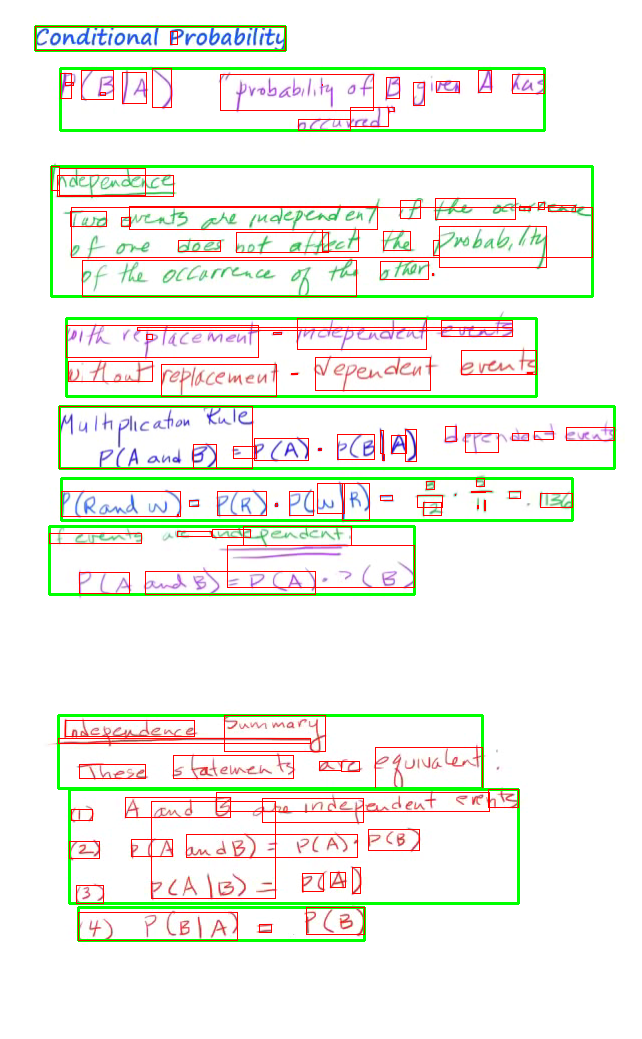 Conditional Probability
P(B|A) "probability of B given A has
occurred"
Independence
Two events are independent if the occurrence
of one does not affect the probability
of the occurrence of the other.
with replacement - independent events
without replacement - dependent events
Multiplication Rule
P(A and B) = P(A) · P(B|A) dependent events
P(R and W) = P(R) · P(W|R) = 3/12 · /11 = .136
If events are independent:
P(A and B) = P(A) · P(B)
Independence Summary
These statements are equivalent:
(1) A and B are independent events
(2) P(A and B) = P(A) · P(B)
(3) P(A|B) = P(A)
(4) P(B|A) = P(B)